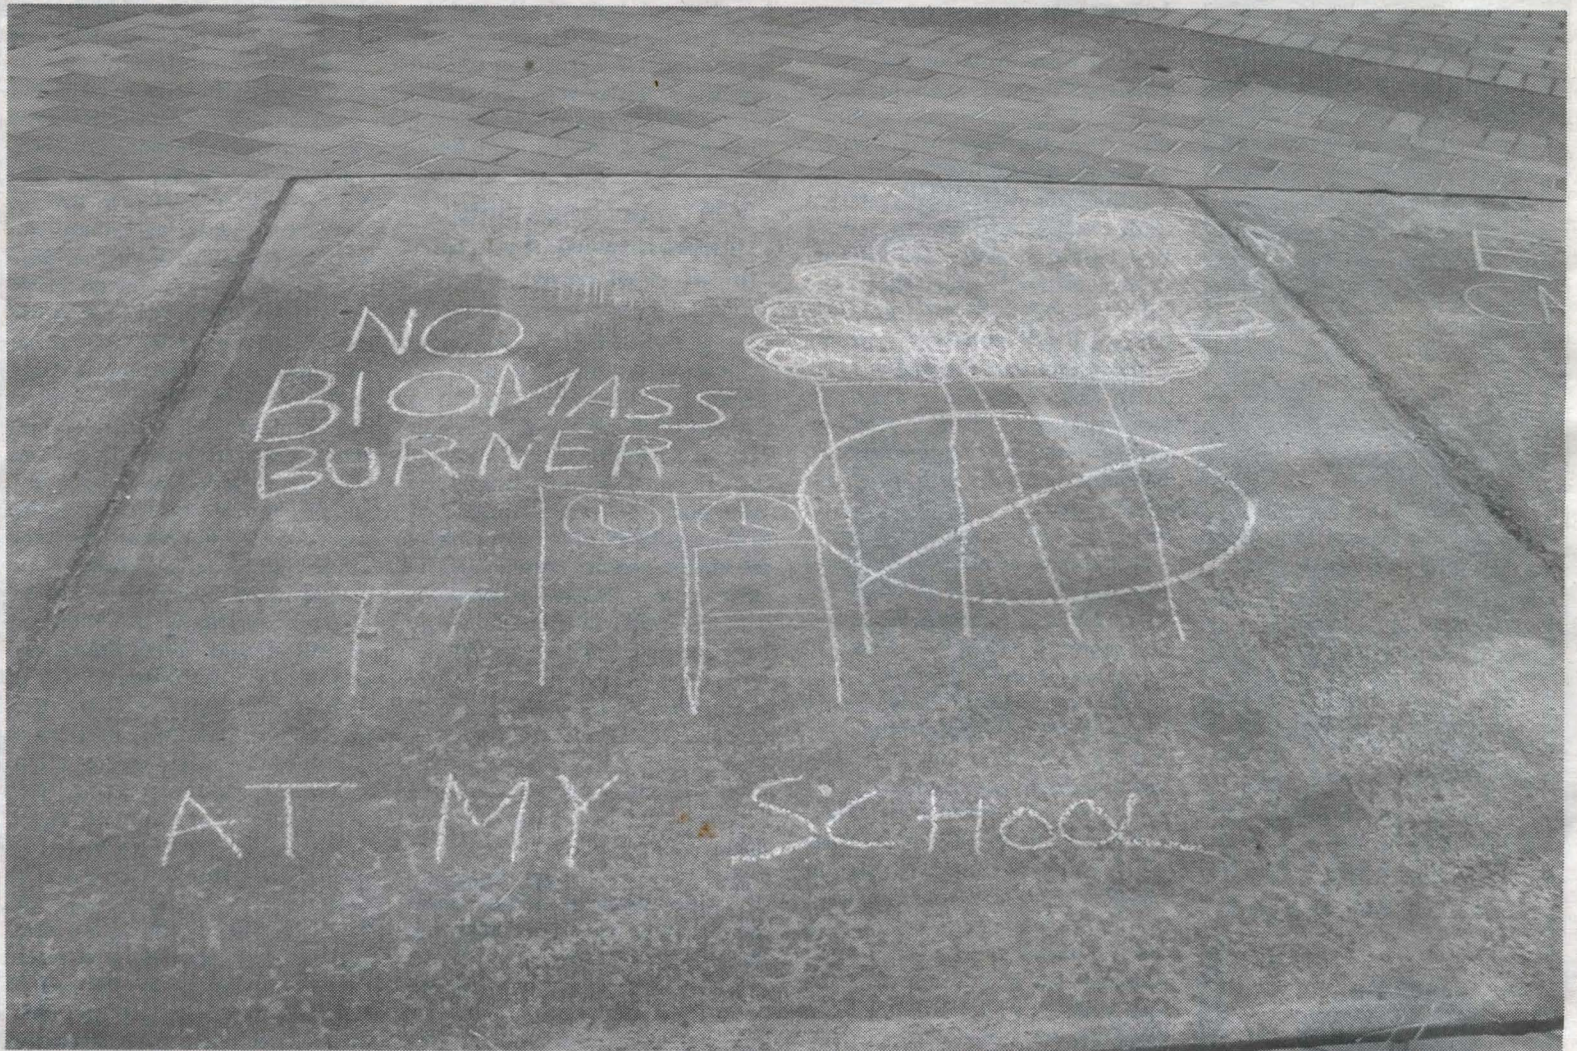 NO
BIOMASS
BURNER
AT MY SCHOOL
CA